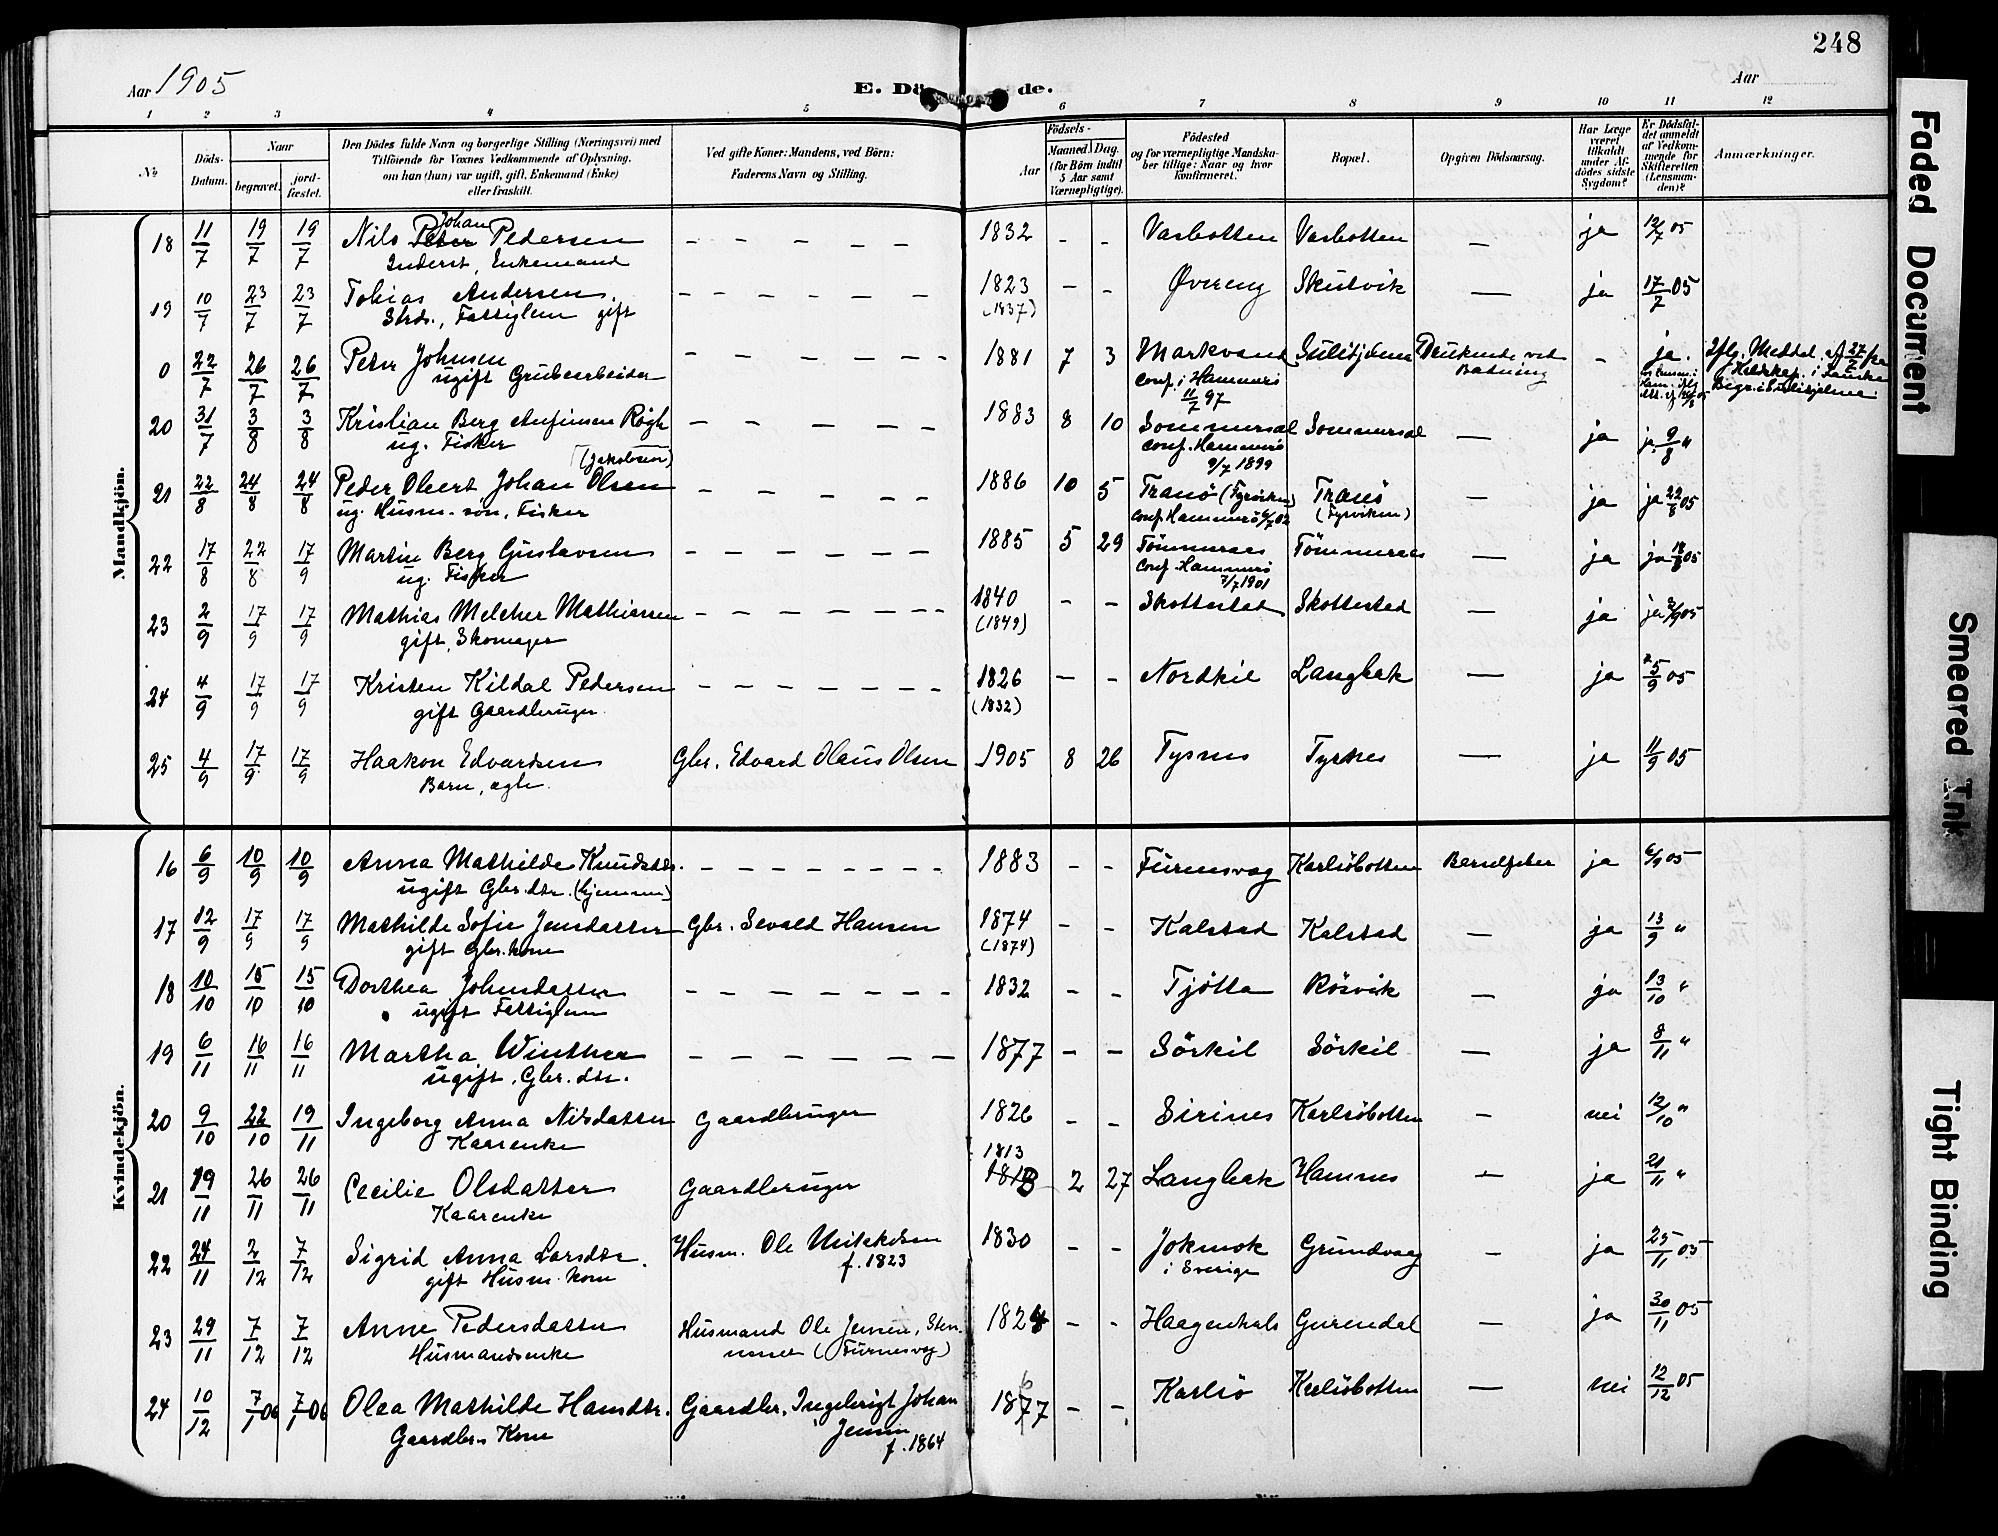 248
Aar 1905
E. Dö
de.
Aar
1 2 3 4 5 6 7 8 9 10 11 12
№
Döds-Datum.
Naar
begravet.
jord-fæstet.
Den Dödes fulde Navn og borgerlige Stilling (Næringsvei) med
Tilföiende for Voxnes Vedkommende af Oplysning,
om han (hun) var ugift, gift, Enkemand (Enke)
eller fraskilt.
Ved gifte Koner: Mandens, ved Börn:
Faderens Navn og Stilling.
Födsels-
Aar
Maaned Dag.
(for Börn indtil
5 Aar samt
Værnepligtige).
Födested
og for værnepligtige Mandska-
ber tillige: Naar og hvor
konfirmeret.
Bopæl.
Opgiven Dödsaarsag.
Har Læge
været
tilkaldt
under Af-
dödes sidste
Sygdom?
Er Dödsfal-
det anmeldt
af Vedkom-
mende for
Skifteretten
(Lensman-
den)?
Anmærkninger.
Mandkjön.
18 11/7 19/7 19/7 Nils Peter Johan Pedersen – – – – – 1832 – – Vasbotten Vasbotten — ja 12/7 05
Inderst, Enkemand
19 10/7 23/7 23/7 Tobias Andersen, – – – – – – 1823 – – Øvereng Skutvik — ja 17/7 05
Fattiglem gift (1837)
0 22/7 26/7 26/7 Peter Johnsen – – – – – – 1881 7 3 Markvand Sulitjelma Druknede ved – ja.
ugift Grubearbeider conf. i Hammerö Badning
11/7 97
Begr. i Sulitjelma
20 31/7 3/8 3/8 Kristian Berg Anfinsen Røgh – – – – – 1883 8 10 Sommersel Sommersel — ja ja 9/8 "
ug. Fisker conf. Hammerö
(Jakobsen) 9/7 1899
21 22/8 24/8 24/8 Peder Olvert Johan Olsen – – – – – 1886 10 5 Tranö Tranö — ja ja 22/8 05
ug. Husm. sön, Fisker conf. Hammerö 6/7 02
22 17/8 22/8 17/9 Martin Berg Gustavsen – – – – – – 1885 5 29 Tömmernes Tömmernes — ja ja 05
ug. Fisker conf. Hammerö
7/7 1901
23 2/9 17/9 17/9 Mathias Melcher Mathiassen – – – – – – 1840 – – Skottestad Skottestad — ja ja 05
gift, Skomager (1849)
24 4/9 17/9 17/9 Kristen Kildal Pedersen – – – – – – 1826 – – Nordkil Langbak — ja 5/9 05
gift Gaardbruger (1832)
25 4/9 17/9 17/9 Haakon Edvardsen Gbr. Edvard Olaus Olsen 1905 8 26 Tysnes Tysnes — ja 11/9 05
Barn, ægte.
Kvindekjön.
16 6/9 10/9 10/9 Anna Mathilde Knudsdtr. – – – – – – – 1883 – – Furensvag Karlsöbotten Barselfeber ja 6/9 05
ugift Gbr. dtr. (hjemme)
17 12/9 17/9 17/9 Mathilde Sofie Jensdatter Gbr. Sevald Hansen 1874 – – Kalstad Kalstad — ja 13/9 "
gift Gbr. kone (1874)
18 10/10 15/10 15/10 Dorthea Johnsdatter – – – – – – 1832 – – Tjötta Rösvik — ja 13/10 "
ugift Fattiglem
19 6/11 16/11 16/11 Martha Winther – – – – – – 1877 – – Sörkil Sörkil — ja 8/11 "
ugift. Gbr. dtr.
20 9/10 22/10 19/11 Ingeborg Anna Nilsdatter Gaardbruger 1826 – – Sirines Karlsöbotten – nei 12/10 "
Kaarenke
1813
21 19/11 26/11 26/11 Cecilie Olsdatter Gaardbruger 1813 2 27 Langbak Hamnes — ja 21/11 "
Kaarenke
22 24/11 2/12 7/12 Sigrid Anna Larsdtr. Husm. Ole 1830 – – Jokmok Grundvaag – ja 25/11 05
gift Husm. kone f. 1823 i Sverige
23 29/11 7/12 7/12 Anne Pedersdatter Husmand Ole Jensen, 1824 – – Haagenhals Gurendal — ja 30/11 05
Husmandsenke (Furnesvag)
24 10/12 7/1 06 7/1 06 Olea Mathilde Hansdtr. Gaardbr. Ingebrigt Johan 1877 – – Karlsö Karlsöbotten — nei 12/12 05
Gaardbr. Kone Jensen
f. 1864
Faded Document
Smeared Ink
Tight Binding